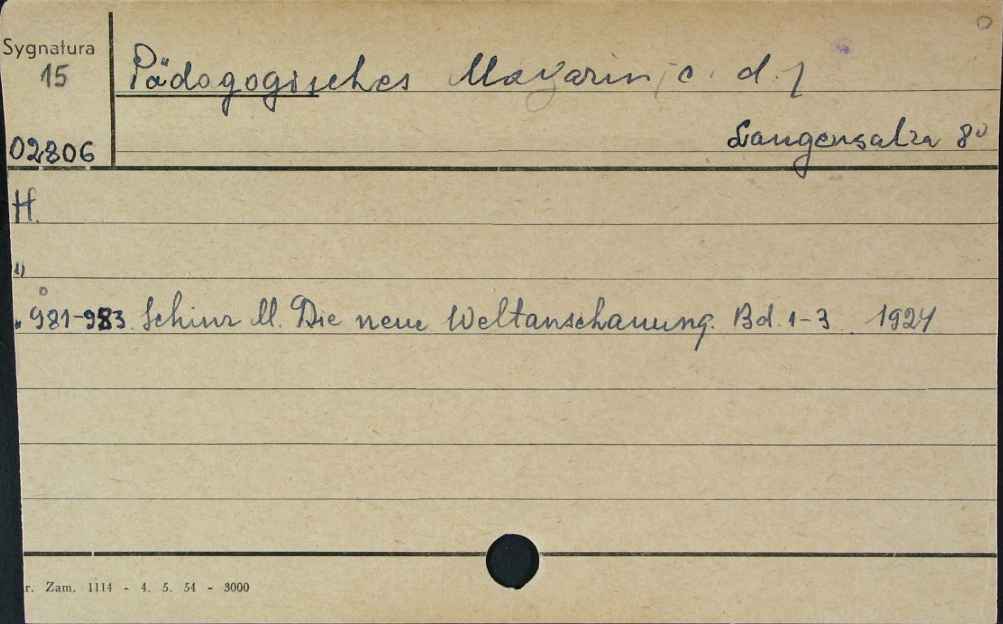 Sygnatura
15
02806
Pädagogisches Magazin (c. d.)
Langensalza 8°
H.
981-983. Schinz M. Die neue Weltanschauung. Bd. 1-3 1924
r. Zam. 1114 - 4. 5. 54 - 3000